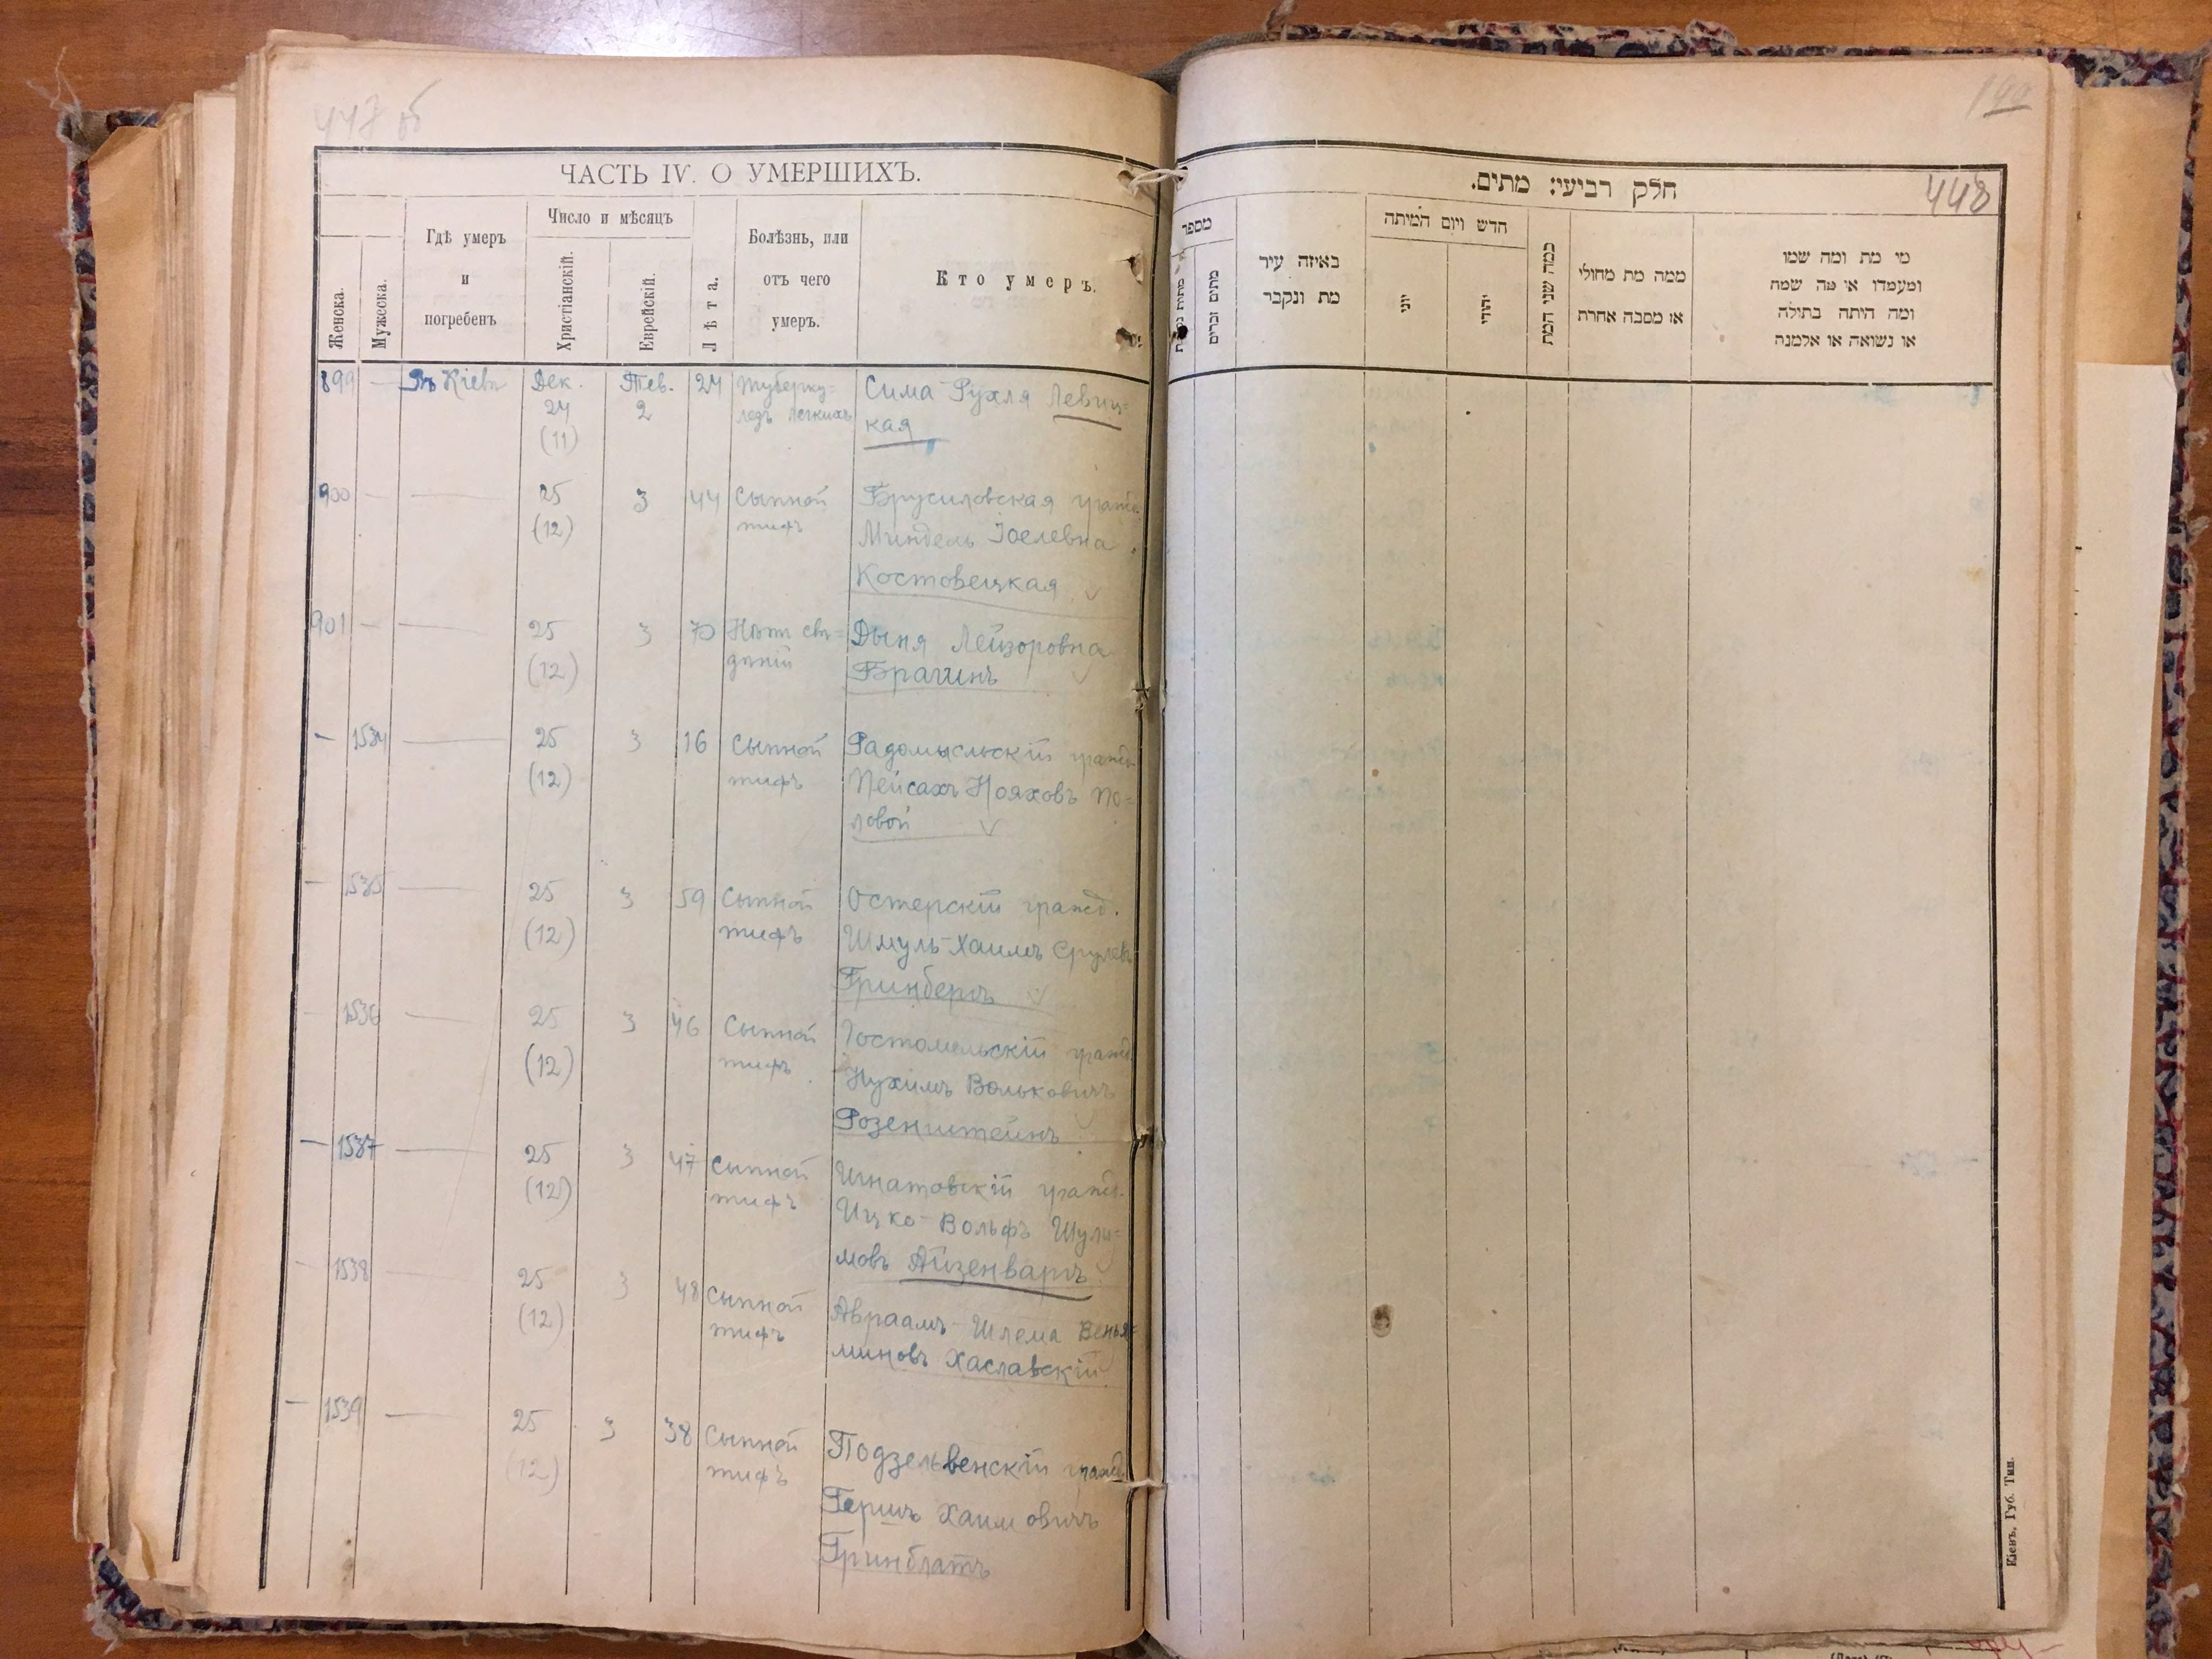 447 об
ЧАСТЬ IV. О УМЕРШИХЪ.
Женска.
Мужеска.
Гдѣ умеръ
и
погребенъ
Число и мѣсяцъ
Христіанскій.
Еврейскій.
Лѣта.
Болѣзнь, или
отъ чего
умеръ.
Кто умеръ.
899 — Въ Кіевѣ Дек. Тев. 24 Туберку= Сима-Рухля Левиц=
24 2 лезъ легкихъ кая
(11)
900 — — 25 3 44 Сыпной Брусиловская гражд.
(12) тифъ Миндель Іоелевна
Костовецкая
901 — — 25 3 70 Нѣтъ свѣ= Дыня Лейзоровна
(12) дѣній Брагинъ
— 1534 — 25 3 16 Сыпной Радомысльскій гражд.
(12) тифъ Пейсахъ Нояховъ По=
ловой
— 1535 — 25 3 59 Сыпной Остерскій гражд.
(12) тифъ Шмуль-Хаимъ Срулевъ
Гринбергъ
1536 — 25 3 46 Сыпной Гостомельскій гражд.
(12) тифъ Нухимъ Вольковичъ
Розенштейнъ
— 1537 — 25 3 47 Сыпной Игнатовскій гражд.
(12) тифъ Ицко-Вольфъ Шули=
мовъ Айзенваргъ
— 1538 — 25 3 48 Сыпной Авраамъ-Шлема Венья=
(12) тифъ миновъ Хаславскій
— 1539 — 25 3 38 Сыпной Подзельвенскій гражд.
(12) тифъ Гершъ Хаимовичъ
Гринблатъ
448
חלק רביעי: מתים.
מספר
מתים זכרים
באיזה עיר
מת ונקבר
חדש ויום המיתה
יוני
יהודי
כמה שני המת
ממה מת מחולי
או מסבה אחרת
מי מת ומה שמו
ומעמדו או מה שמה
ומה היתה בתולה
או נשואה או אלמנה
Кіевъ, Губ. Тип.